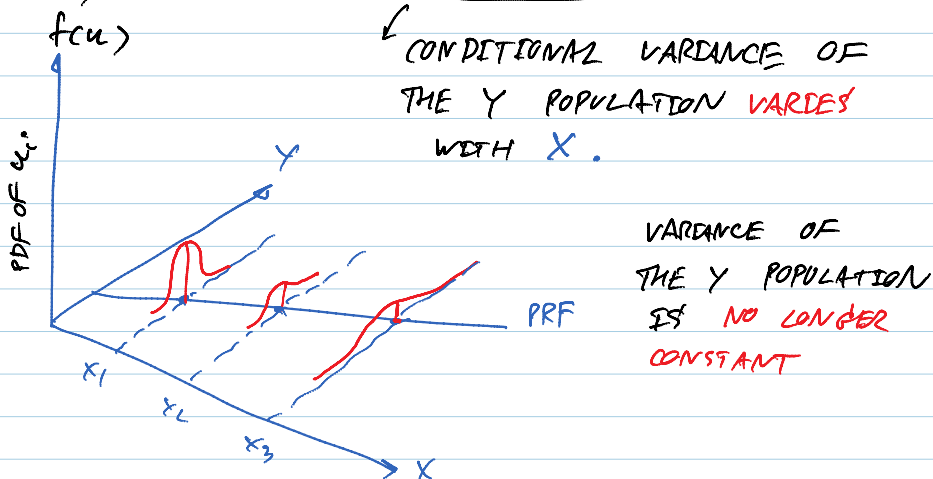 f(u)
CONDITIONAL VARIANCE OF
THE Y POPULATION VARIES
WITH X.
PDF OF ui
Y
VARIANCE OF
THE Y POPULATION
IS NO LONGER
CONSTANT
PRF
X1
X2
X3
X